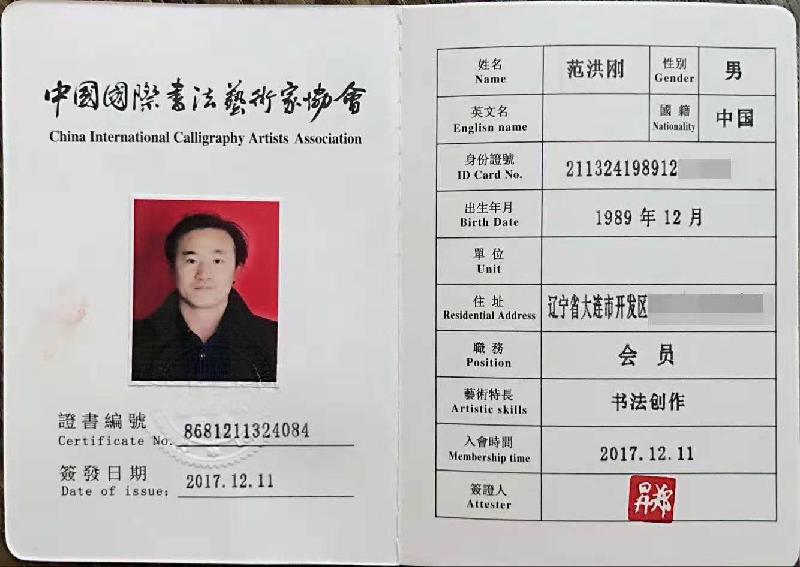 中國國際書法藝術家協會
China International Calligraphy Artists Association
證書編號 8681211324084
Certificate No.
簽發日期 2017.12.11
Date of issue:
姓名 范洪刚 性別 男
Name Gender
英文名 國籍 中国
Englisn name Nationality
身份證號 211324198912
ID Card No.
出生年月 1989 年 12 月
Birth Date
單位
Unit
住址 辽宁省大连市开发区
Residential Address
職務 会员
Position
藝術特長 书法创作
Artistic skills
入會時間 2017.12.11
Membership time
簽證人
Attester